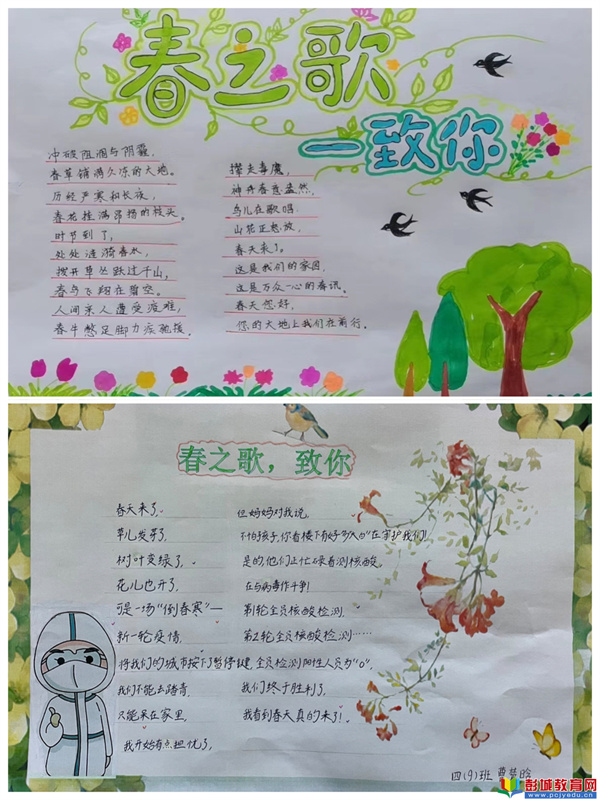 春之歌
一致你
冲破阻涸与阴霾，
春草铺满久冻的大地。
历经严寒和长夜，
春花挂满昂扬的枝头。
时节到了，
处处涟漪春水，
拨开草丛跃过千山，
春鸟飞翔在碧空。
人间亲人遭受疫难，
春牛憋足脚力疾驰援。
撵走毒魔，
神州春意盎然，
鸟儿在歌唱
山花正怒放
春天来了。
这是我们的家园，
这是万众一心的春讯。
春天您好，
您的大地上我们在前行。
春之歌，致你
春天来了，
草儿发芽了，
树叶变绿了，
花儿也开了，
可是一场“倒春寒”—
新一轮疫情，
将我们的城市按下了暂停键，
我们不能去踏青，
只能呆在家里，
我开始有点担忧了，
但妈妈对我说，
不怕孩子，你看楼下有好多人“白”在守护我们！
是的，他们正忙碌着测核酸，
在与病毒作斗争！
第1轮全员核酸检测，
第2轮全员核酸检测……
全员检测阳性人员为“0”，
我们终于胜利了，
我看到春天真的来了！
四（9）班
彭城教育网
www.pcjyedu.cn